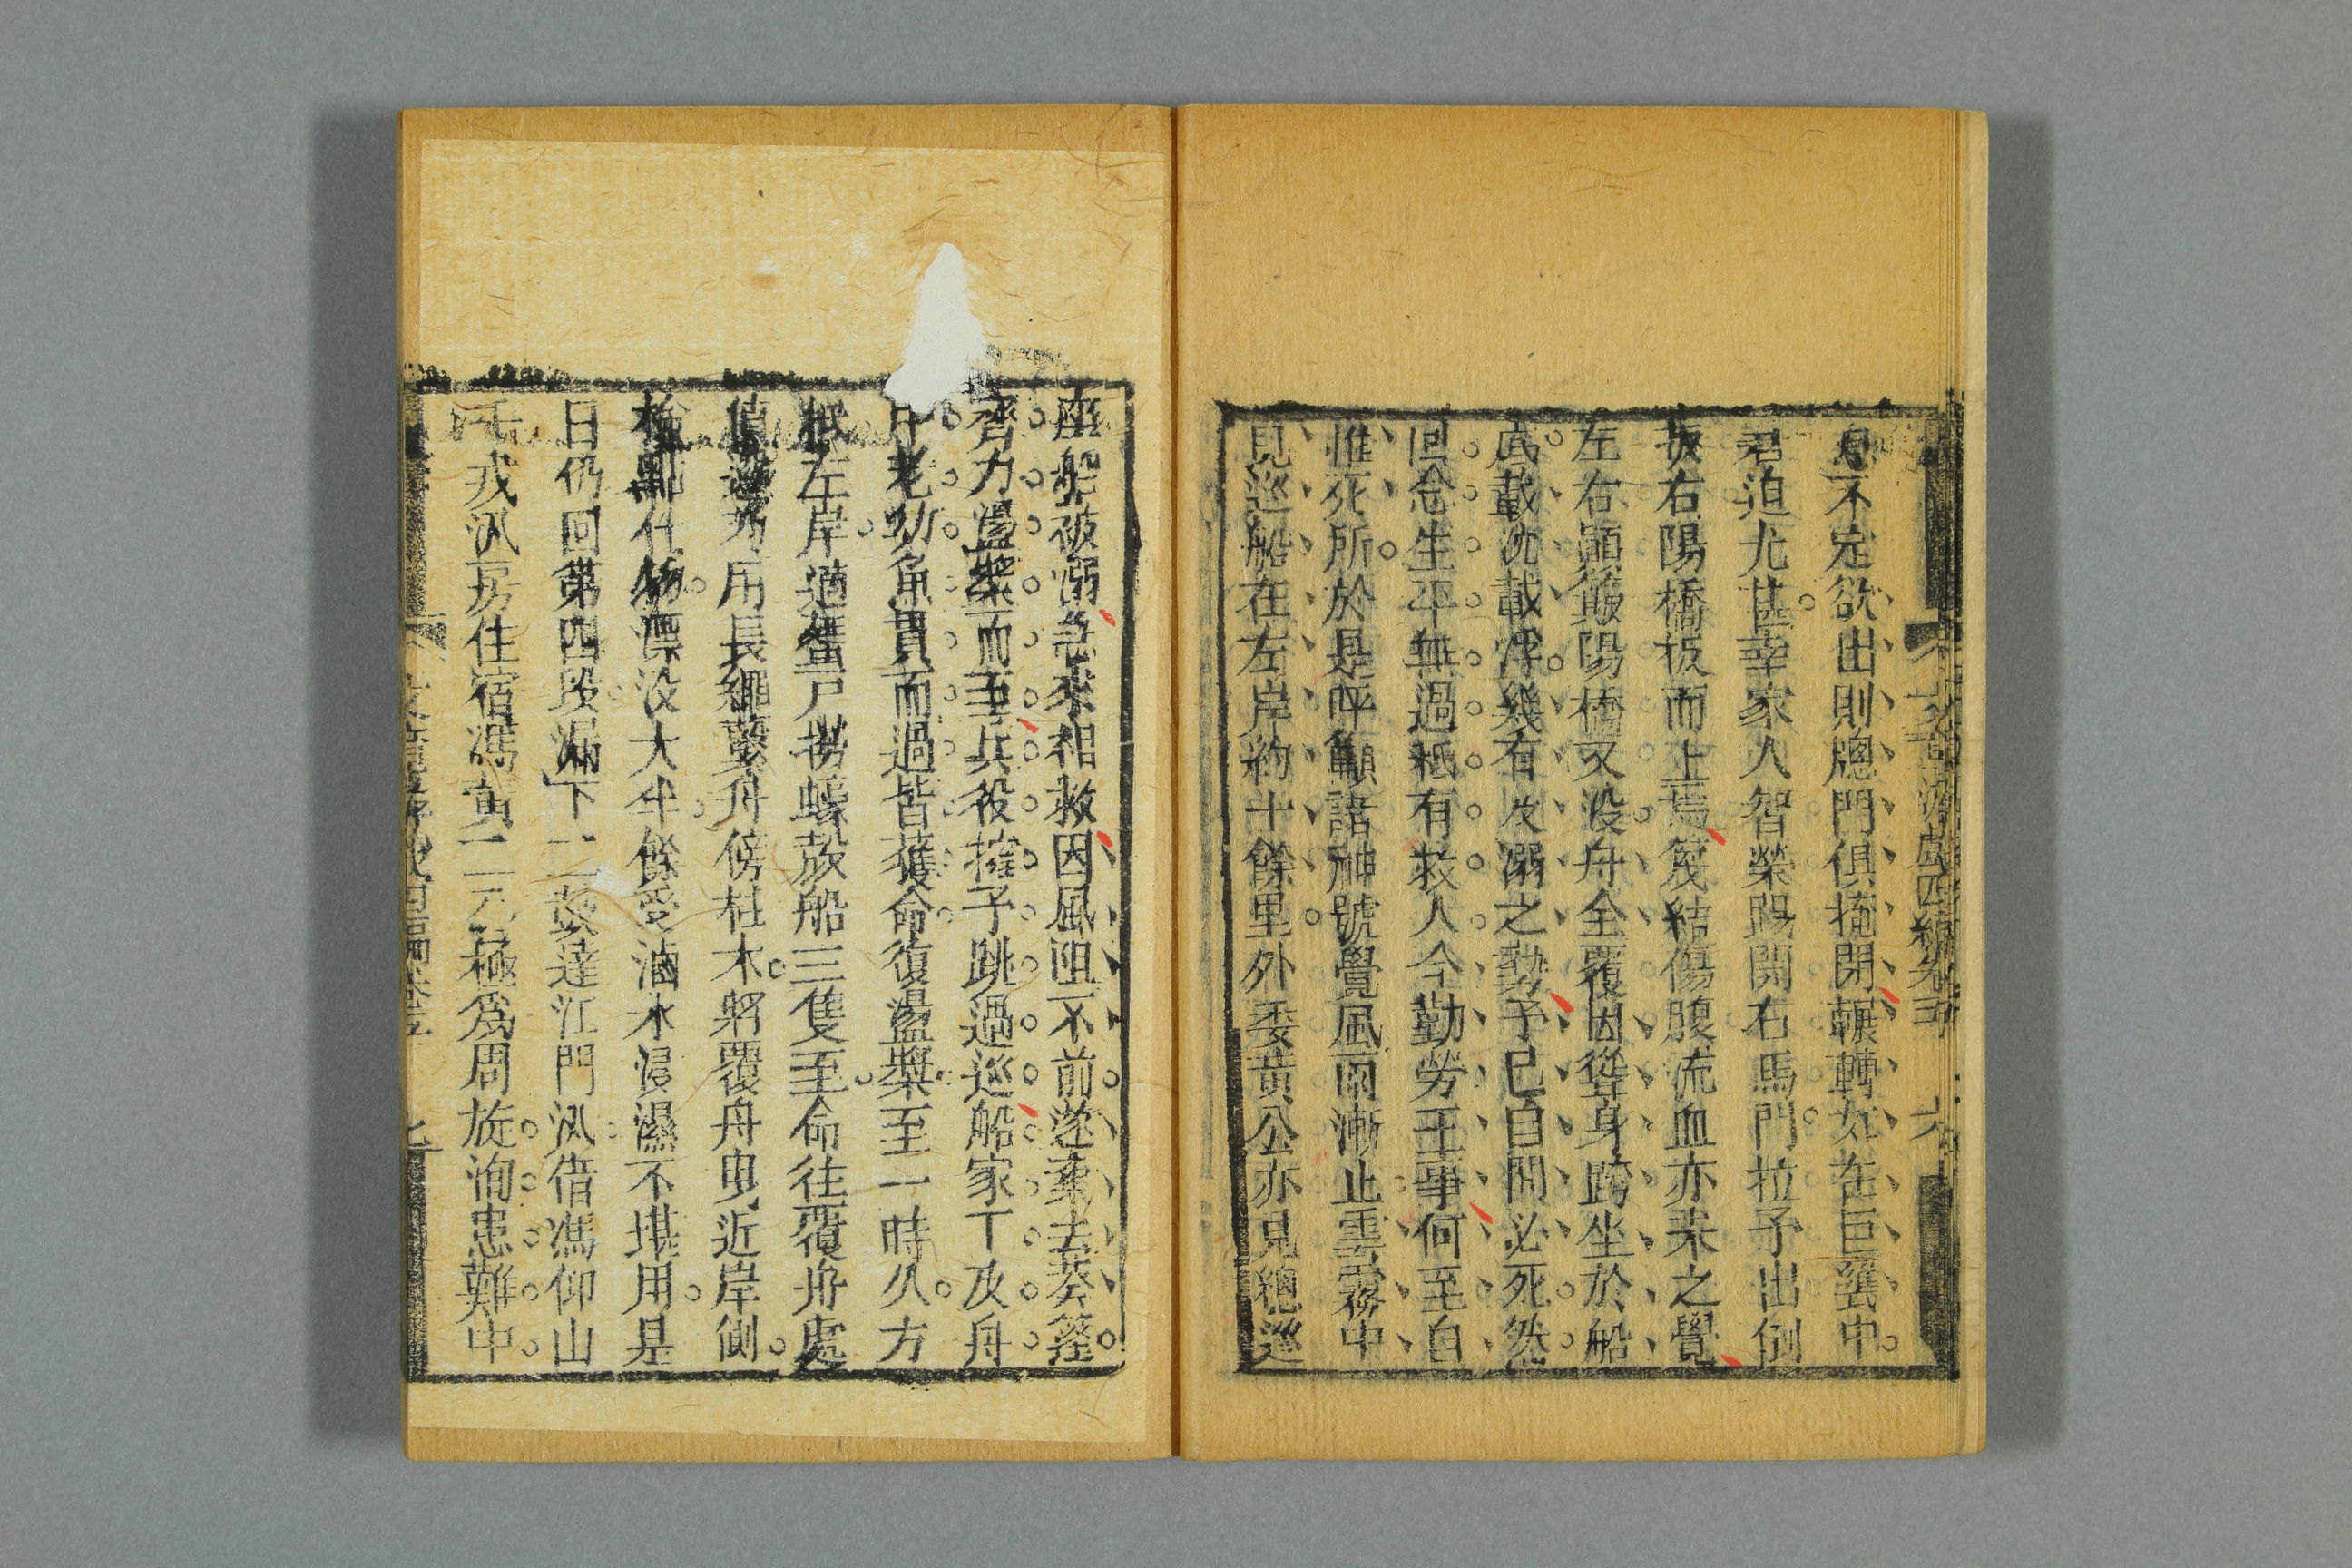 文章游戲四編卷五 六
息不定欲出則牕門俱掩閉輾轉如在巨甕中
君迫尤甚幸家人智榮踢開右馬門拉予出倒
扳右陽橋板而上焉篾結傷腹流血亦未之覺
左右顚簸陽橋又没舟全覆因聳身跨坐於船
底載沈載浮幾有及溺之勢予已自問必死然
回念生平無過秪有救人今勤勞王事何至自
惟死所於是呼籲諸神號覺風雨漸止雲霧中
見巡船在左岸約十餘里外委黄公亦見總巡
座船破溺急來相救因風阻不前遂棄去葵篷
齊力盪槳而至兵役擁予跳過巡船家丁及舟
中老幼魚貫而過皆獲命復盪槳至一時久方
抵左岸適蜑戸撈蠔殻船三隻至命往覆舟處
值 用長繩繫舟傍杜木將覆舟曳近岸側
檢點什物漂没大半餘受滷水浸濕不堪用是
日仍回第四段漏下二鼓達江門汛借馮仰山
千戎汛房住宿馮黄二元極爲周旋洵患難中
文章游戲四編卷五 七